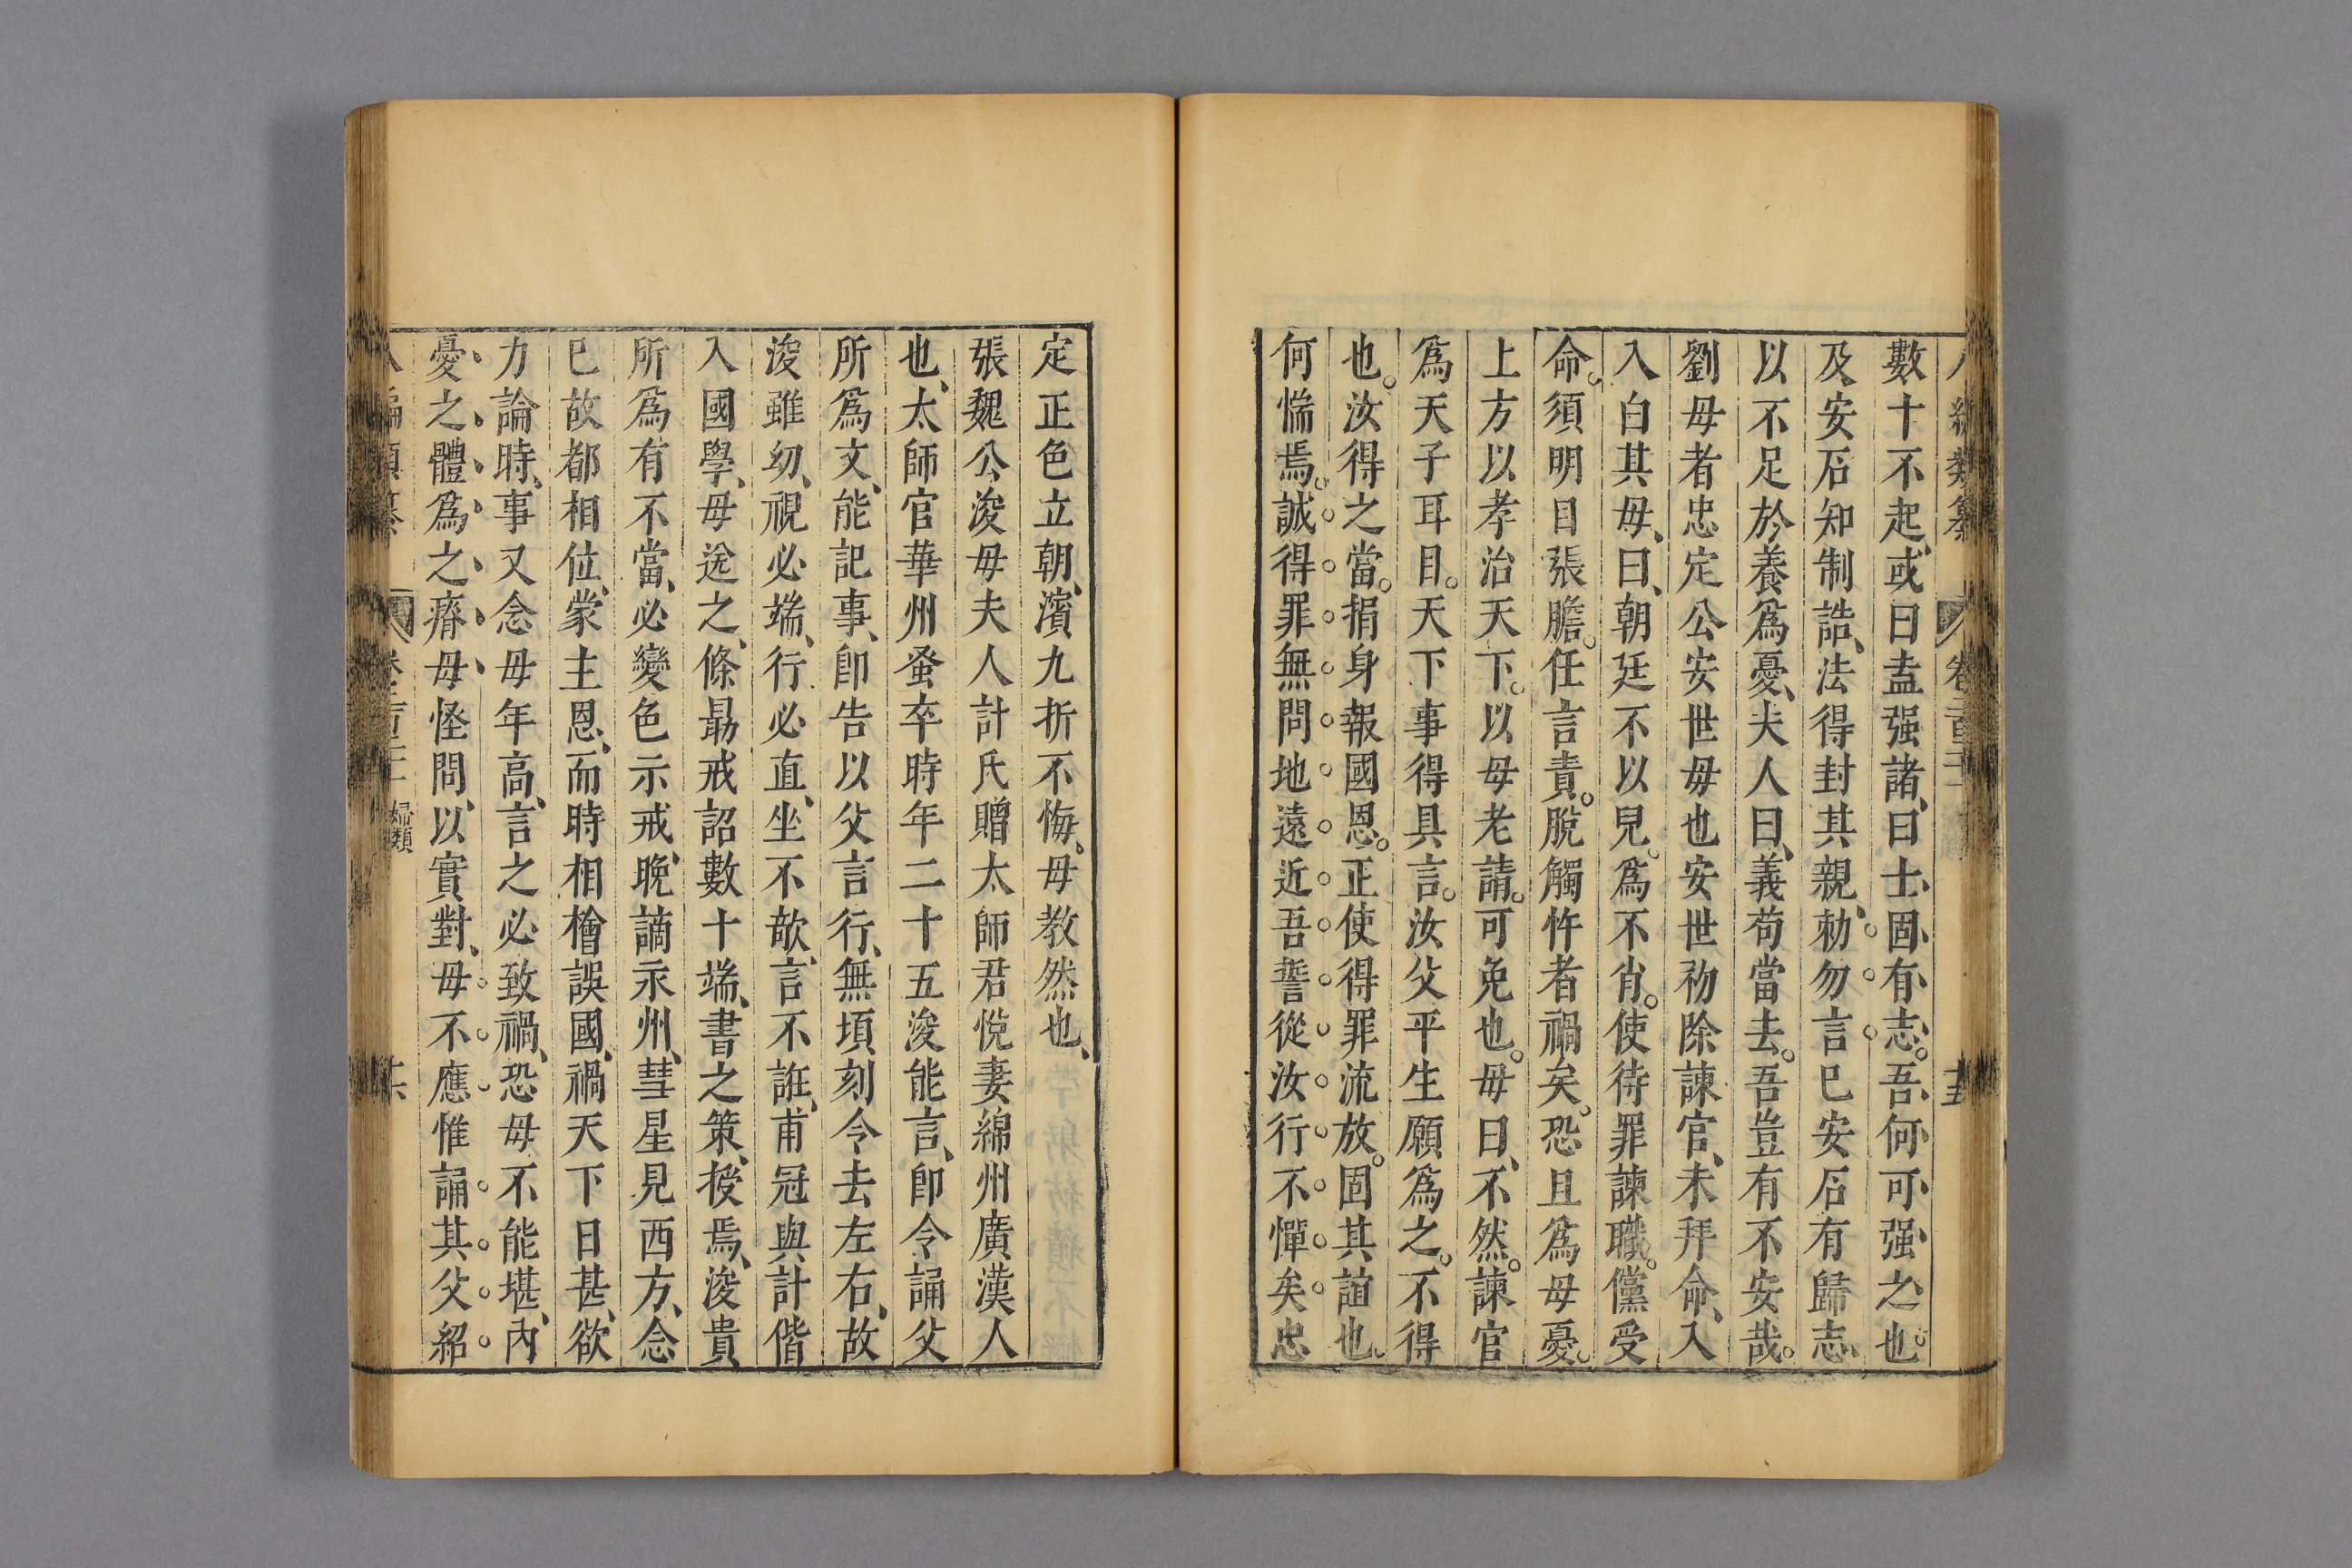 數十不起、或曰盍强諸、曰士固有志。吾何可强之也。
及安石知制誥、法得封其親、勑勿言巳安石有歸志、
以不足於養爲憂、夫人曰、義苟當去。吾豈有不安哉。
劉母者忠定公安世母也安世初除諫官、未拜命、入
入白其母、曰、朝廷不以兒。爲不肖。使待罪諫職。儻受
命。須明目張膽。任言責。脫觸忤者禍矣。恐且爲母憂。
上方以孝治天下。以母老請。可免也。母曰、不然。諫官
爲天子耳目。天下事得具言。汝父平生願爲之。不得
也。汝得之當。捐身報國恩。正使得罪流放。固其誼也。
何惴焉。誠得罪無問地遠近吾誓從汝行不憚矣忠
定正色立朝、濱九折不悔、母教然也、
張魏公浚母夫人計氏贈太師君悅妻綿州廣漢人
也、太師官華州蚤卒時年二十五浚能言、卽令誦父
所爲文、能記事、卽告以父言行、無頃刻令去左右、故
浚雖幼、視必端、行必直、坐不欹、言不誑、甫冠與計偕
入國學、母送之、條最戒詔數十端、書之策、授焉、浚貴
所爲有不當、必變色示戒、晚謫永州、彗星見西方、念
巳故都相位、蒙主恩、而時相檜誤國、禍天下日甚、欲
力論時、事又念母年高、言之必致禍、恐母不能堪、內
憂之體爲之瘠、母怪問、以實對、母不應惟誦其父紹
編類纂 婦類